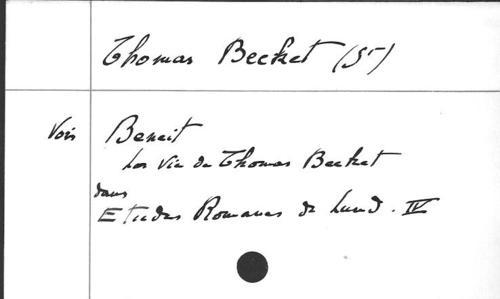 Thomas Becket (St)
Voir Beneit
La Vie de Thomas Becket
dans
Etudes Romanes de Lund. IV